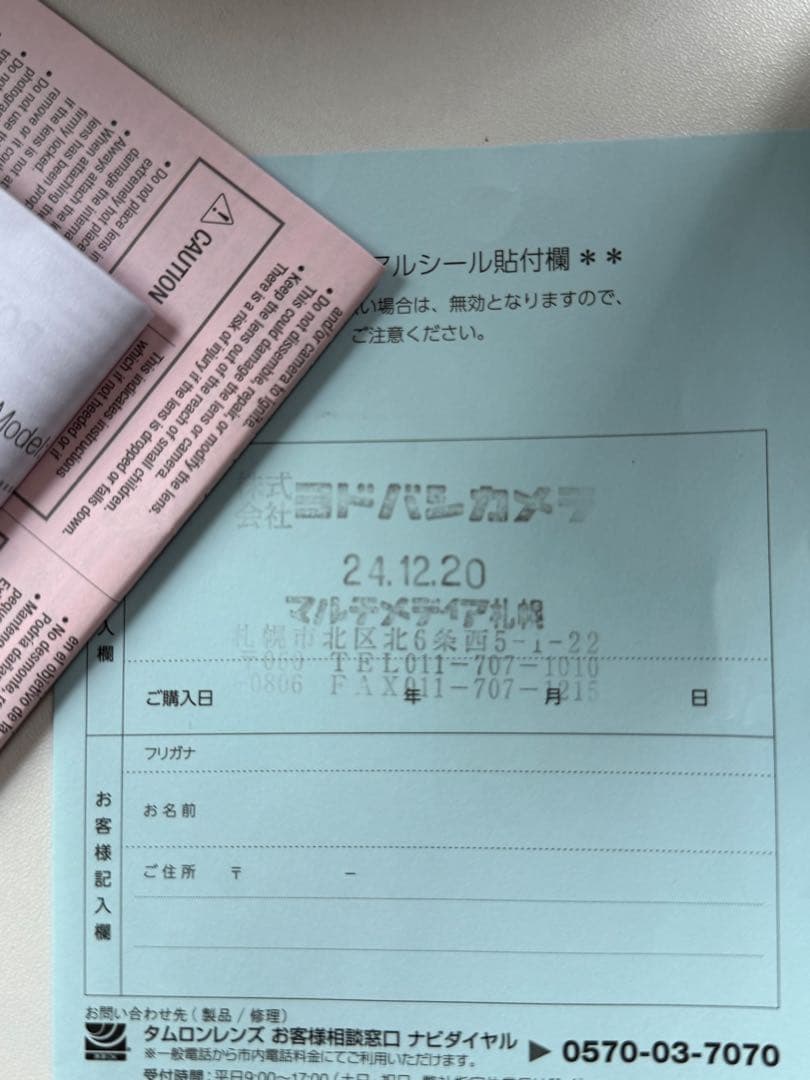 アルシール貼付欄＊＊
い場合は、無効となりますので、
ご注意ください。
株式会社ヨドバシカメラ
24.12.20
マルチメディア札幌
札幌市北区北6条西5-1-22
〒060 TEL011-707-1010
-0806 FAX011-707-1215
入欄
ご購入日 年 月 日
お客様記入欄
フリガナ
お名前
ご住所 〒 －
お問い合わせ先（製品／修理）
タムロンレンズ お客様相談窓口 ナビダイヤル ▶ 0570-03-7070
※一般電話から市内電話料金にてご利用いただけます。
受付時間：平日9:00～17:00
CAUTION
This indicates instructions
which if not heeded or if
• Do not dissemble, repair, or modify the lens.
This could damage the lens or camera.
• Keep the lens out of the reach of small children.
There is a risk of injury if the lens is dropped or falls down.
and/or camera to ignite.
• Do not place lens in
extremely hot place
damage the interna
• Always attach the
lens has been prop
• When attaching the
firmly locked.
If the lens is not a
remove or it coul
• Do not use th
photogra
• No desmonte, re
en el objetivo de la
Podría daña
• Mantene
Model